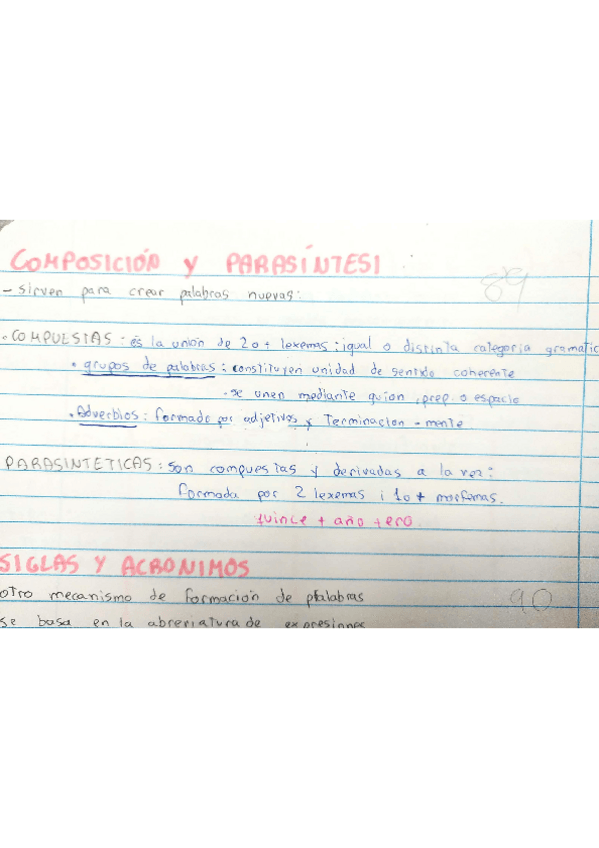 COMPOSICIÓN Y PARASÍNTESI
89
- sirven para crear palabras nuevas:
· COMPUESTAS: és la unión de 2 o + lexemas: igual o distinta categoria gramatic
· grupos de palabras: constituyen unidad de sentido coherente
- se unen mediante guion, prep. o espacio
· Adverbios: formado por adjetivos y terminacion - mente
PARASINTETICAS: son compuestas y derivadas a la vez:
formada por 2 lexemas i 1 o + morfemas.
quince + año + ero
SIGLAS Y ACRONIMOS
otro mecanismo de formación de palabras
90
se basa en la abreviatura de expresiones